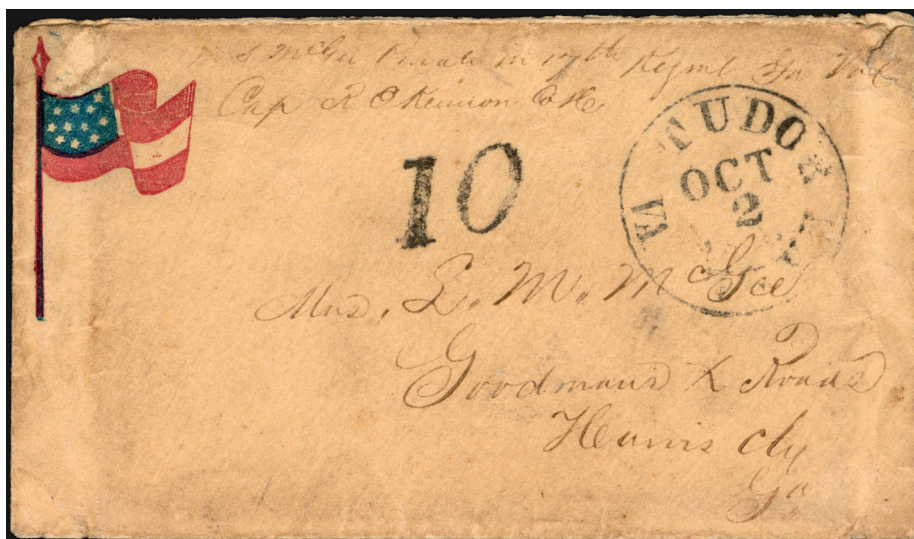 S. McGee Private in 17th Regiml Ga Vol
Cap R C Kennon Co H
10
TUDOR
OCT
2
Mrs. L. M. McGee
Goodmans X Roads
Harris cty
Ga